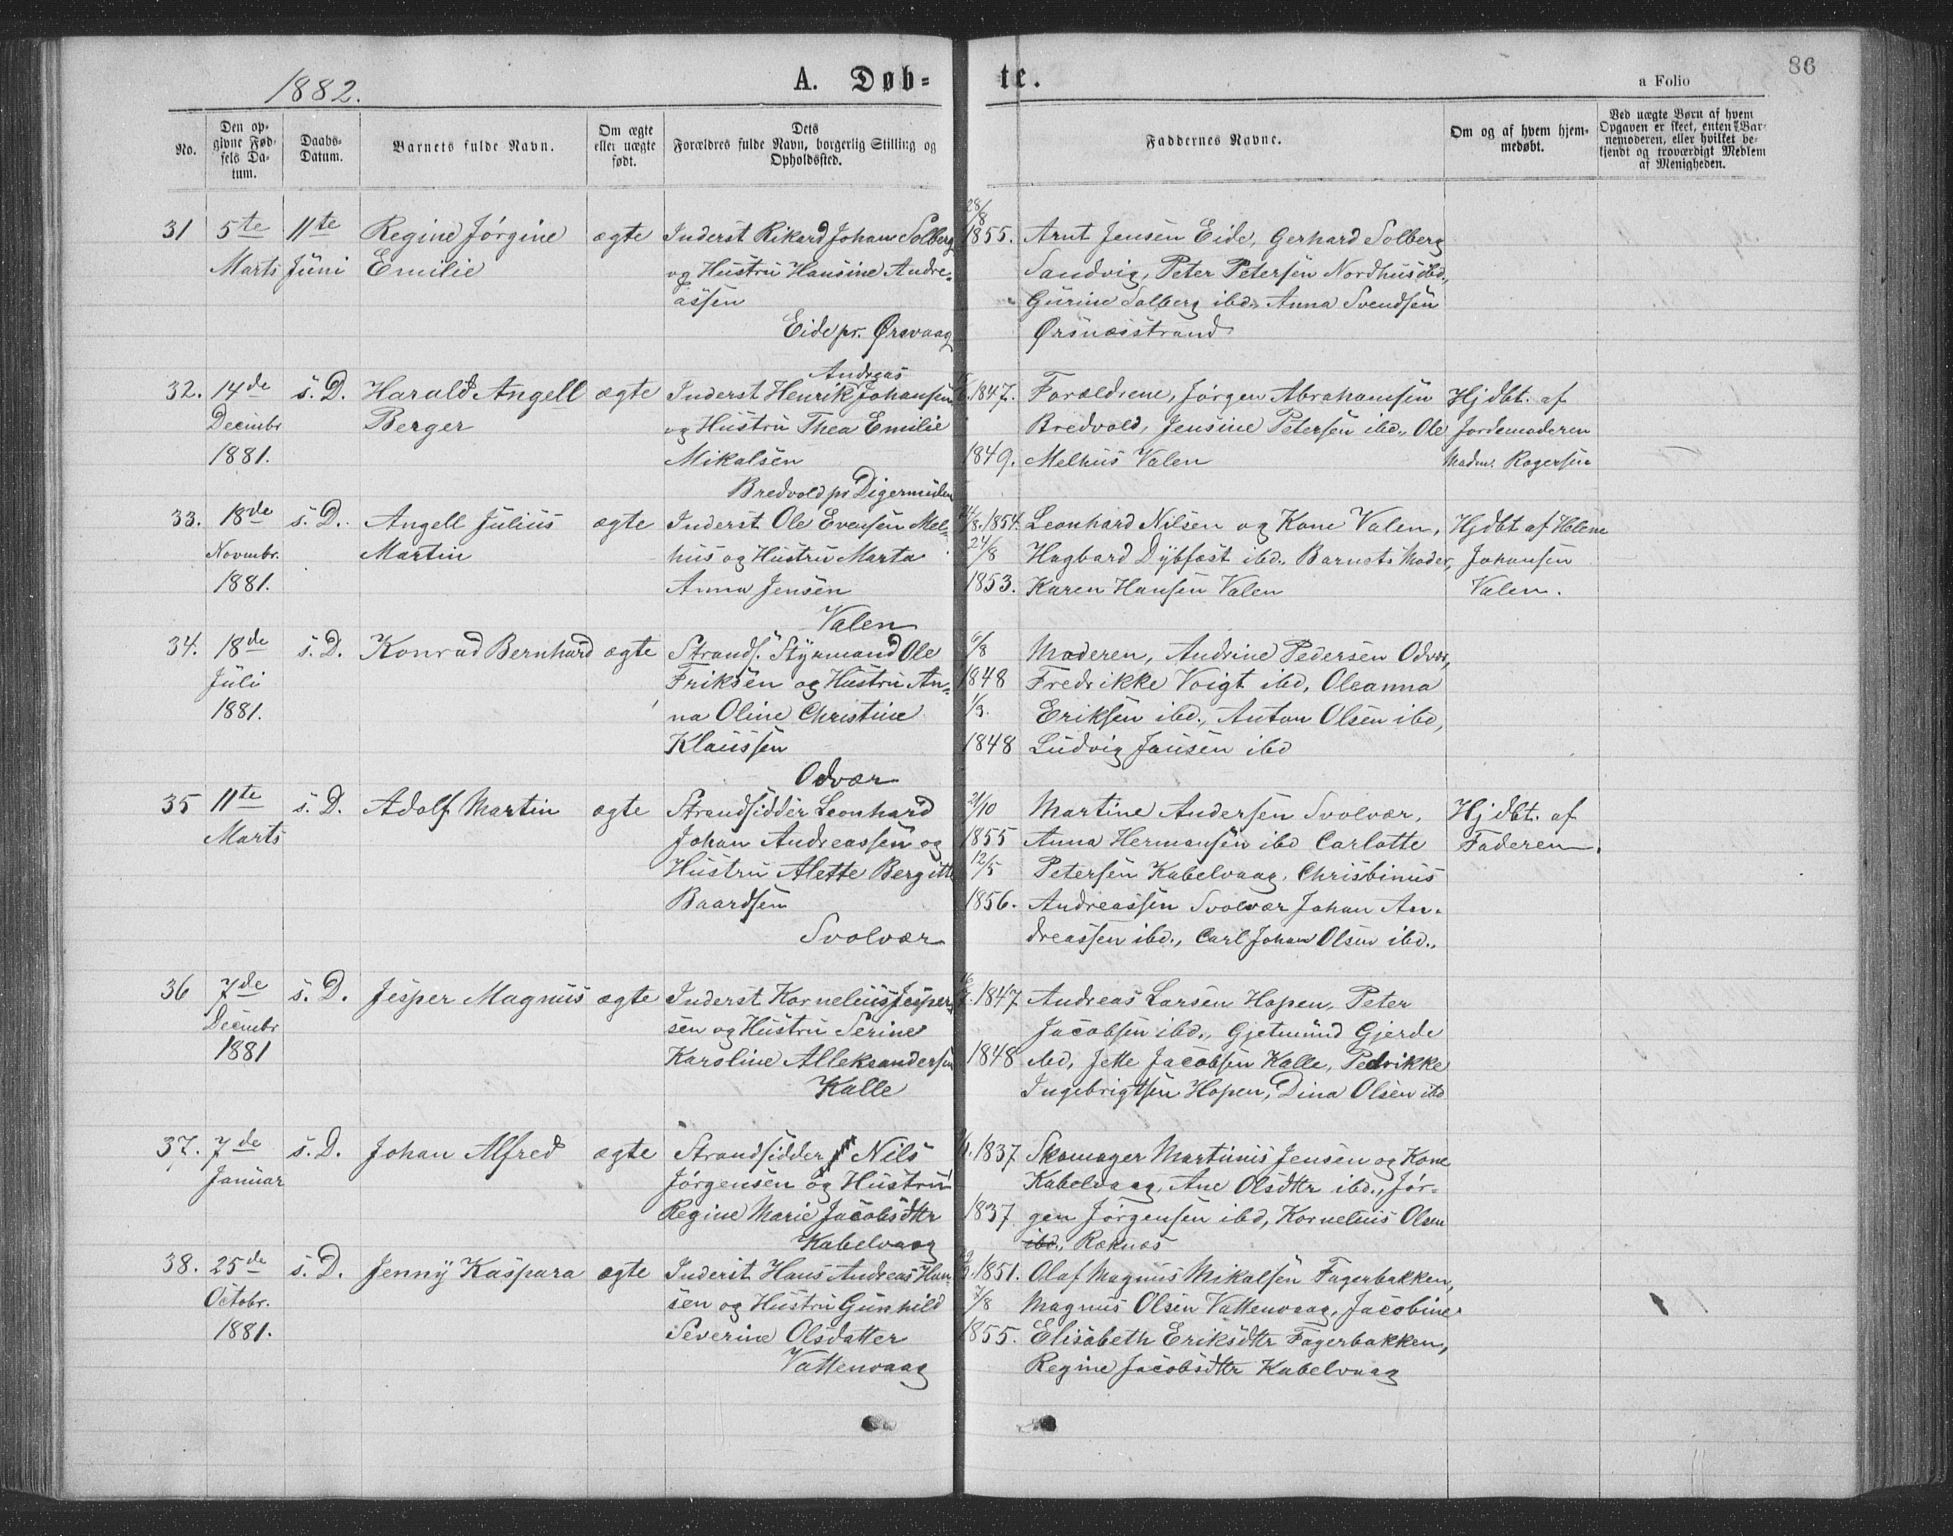 1882.
A. Døb-
te.
a Folio
86
No.
Den op-
givne Fød-
sels Da-
tum.
Daabs-
Datum.
Barnets fulde Navn.
Om ægte
eller uægte
født.
Dets
Forældres fulde Navn, borgerlig Stilling og
Opholdssted.
Faddernes Navne.
Om og af hvem hjem-
medøbt.
Ved uægte Børn af hvem
Opgaven er skeet, enten Bar-
nemoderen, eller hvilket be-
kjendt og troværdigt Medlem
af Menigheden.
31
5te
Marts
11te
Juni
Regine Jørgine
Emilie
ægte
Inderst Rikard Johan Solberg
og Hustru Hansine Andre-
assen
Eide pr. Ørsvaag
28/8
1855.
Arnt Jensen Eide, Gerhard Solberg
Sandvig, Peter Petersen Nordhus ibd.,
Gurine Solberg ibd., Anna Svendsen
Ørsnæsstrand
32.
14de
Decembr
1881.
s. D.
Harald Angell
Berger
ægte
Andreas
Inderst Henrik Johansen
og Hustru Thea Emilie
Mikalsen
Bredvold pr Digermulen
1847.
1849.
Forældrene, Jørgen Abrahamsen
Bredvold, Jensine Petersen ibd., Ole
Melhus Valen
Hjdbt. af
Jordemoderen
Madm. Rogersen
33.
18de
Novmbr.
1881.
s. D.
Angell Julius
Martin
ægte
Inderst Ole Evensen Mel-
hus og Hustru Marta
Anna Jensen
Valen
1854.
24/8
1853.
Leonhard Nilsen og Kone Valen,
Hagbard Dybfest ibd., Barnets Moder,
Karen Hansen Valen
Hjdbt af Helene
Johansen
Valen.
34.
18de
Juli
1881.
s. D.
Konrad Bernhard
ægte
Strands. Styrmand Ole
Eriksen og Hustru An-
na Oline Christine
Klaussen
Odvær
6/8
1848
1/3.
1848
Moderen, Andrine Pedersen Odvær,
Fredrikke Voigt ibd, Oleanna
Eriksen ibd., Anton Olsen ibd,
Ludvig Jansen ibd
35
11te
Marts
s. D.
Adolf Martin
ægte
Strandsidder Leonhard
Johan Andreassen og
Hustru Alette Bergitte
Baardsen
Svolvær
21/10
1855
12/5
1856.
Martine Andersen Svolvær,
Anna Hermansen ibd Carlotte
Petersen Kabelvaag, Christinus
Andreassen Svolvær Johan An-
dreassen ibd., Carl Johan Olsen ibd.,
Hjdbt. af
Faderen.
36
7de
Decembr
1881
s. D.
Jesper Magnus
ægte
Inderst Kornelius Jesper-
sen og Hustru Serine
Karoline Alleksandersen
Kalle
1847
1848
Andreas Larsen Hopen, Peter
Jacobsen ibd., Gjetmund Gjerde
ibd, Jette Jacobsen Kalle, Pedrikke
Ingebrigtsen Hopen, Dina Olsen ibd
37.
7de
Januar
s. D.
Johan Alfred
ægte
Strandsidder Nils
Jørgensen og Hustru
Regine Marie Jacobsdtr
Kabelvaag
1837
1837
Skomager Martinus Jensen og Kone
Kabelvaag, Ane Olsdtr ibd., Jør-
gen Jørgensen ibd, Kornelius Olsen
ibd., Roknæs
38.
25de
Octobr.
1881.
s. D.
Jenny Kaspara
ægte
Inderst Hans Andreas Han-
sen og Hustru Gunhild
Severine Olsdatter
Vattenvaag
1851.
1855.
Olaf Magnus Mikalsen Fagerbakken,
Magnus Olsen Vattenvaag, Jacobine
Elisabeth Eriksdtr Fagerbakken,
Regine Jacobsdtr Kabelvaag